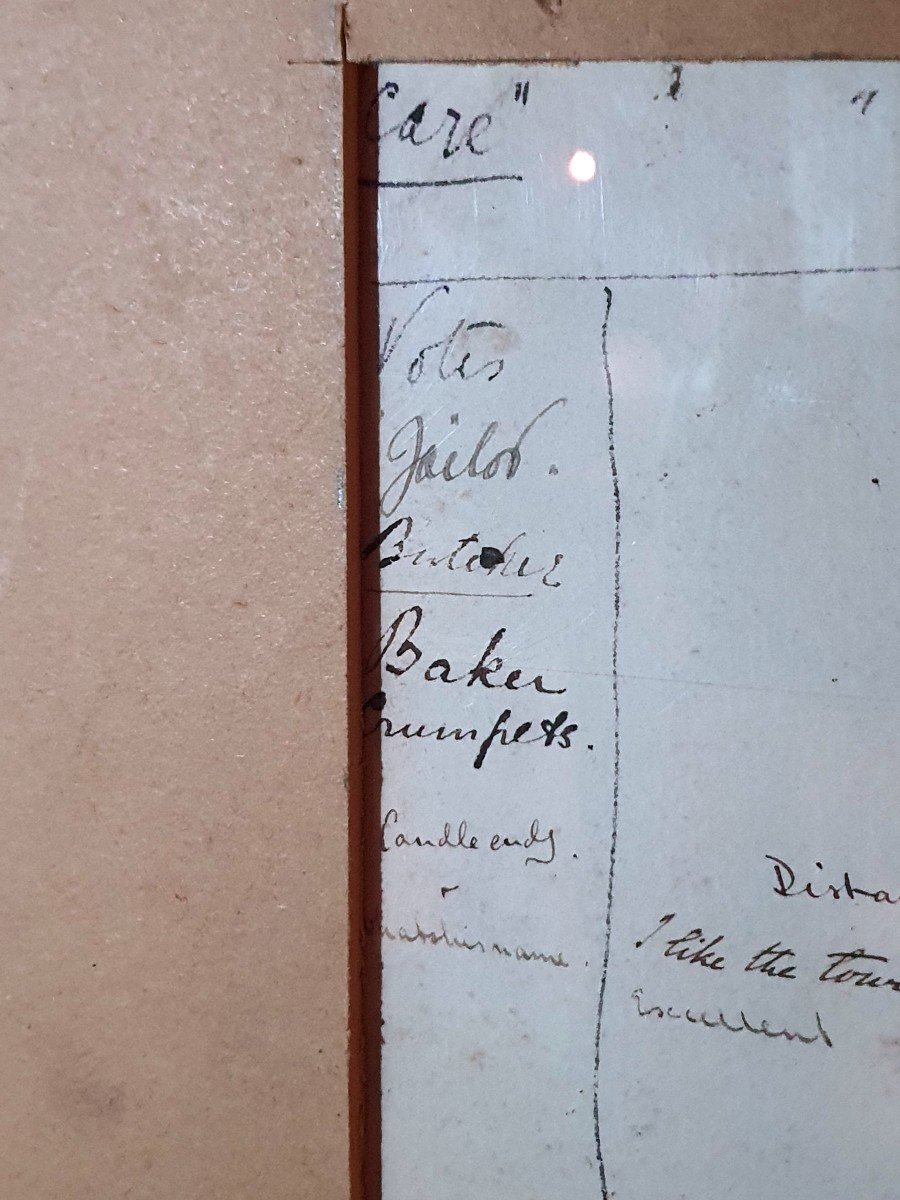 Care" "
Votes
Jailor.
Butcher
Baker
Crumpets.
Candle ends.
Dista
I like the town
Excellent